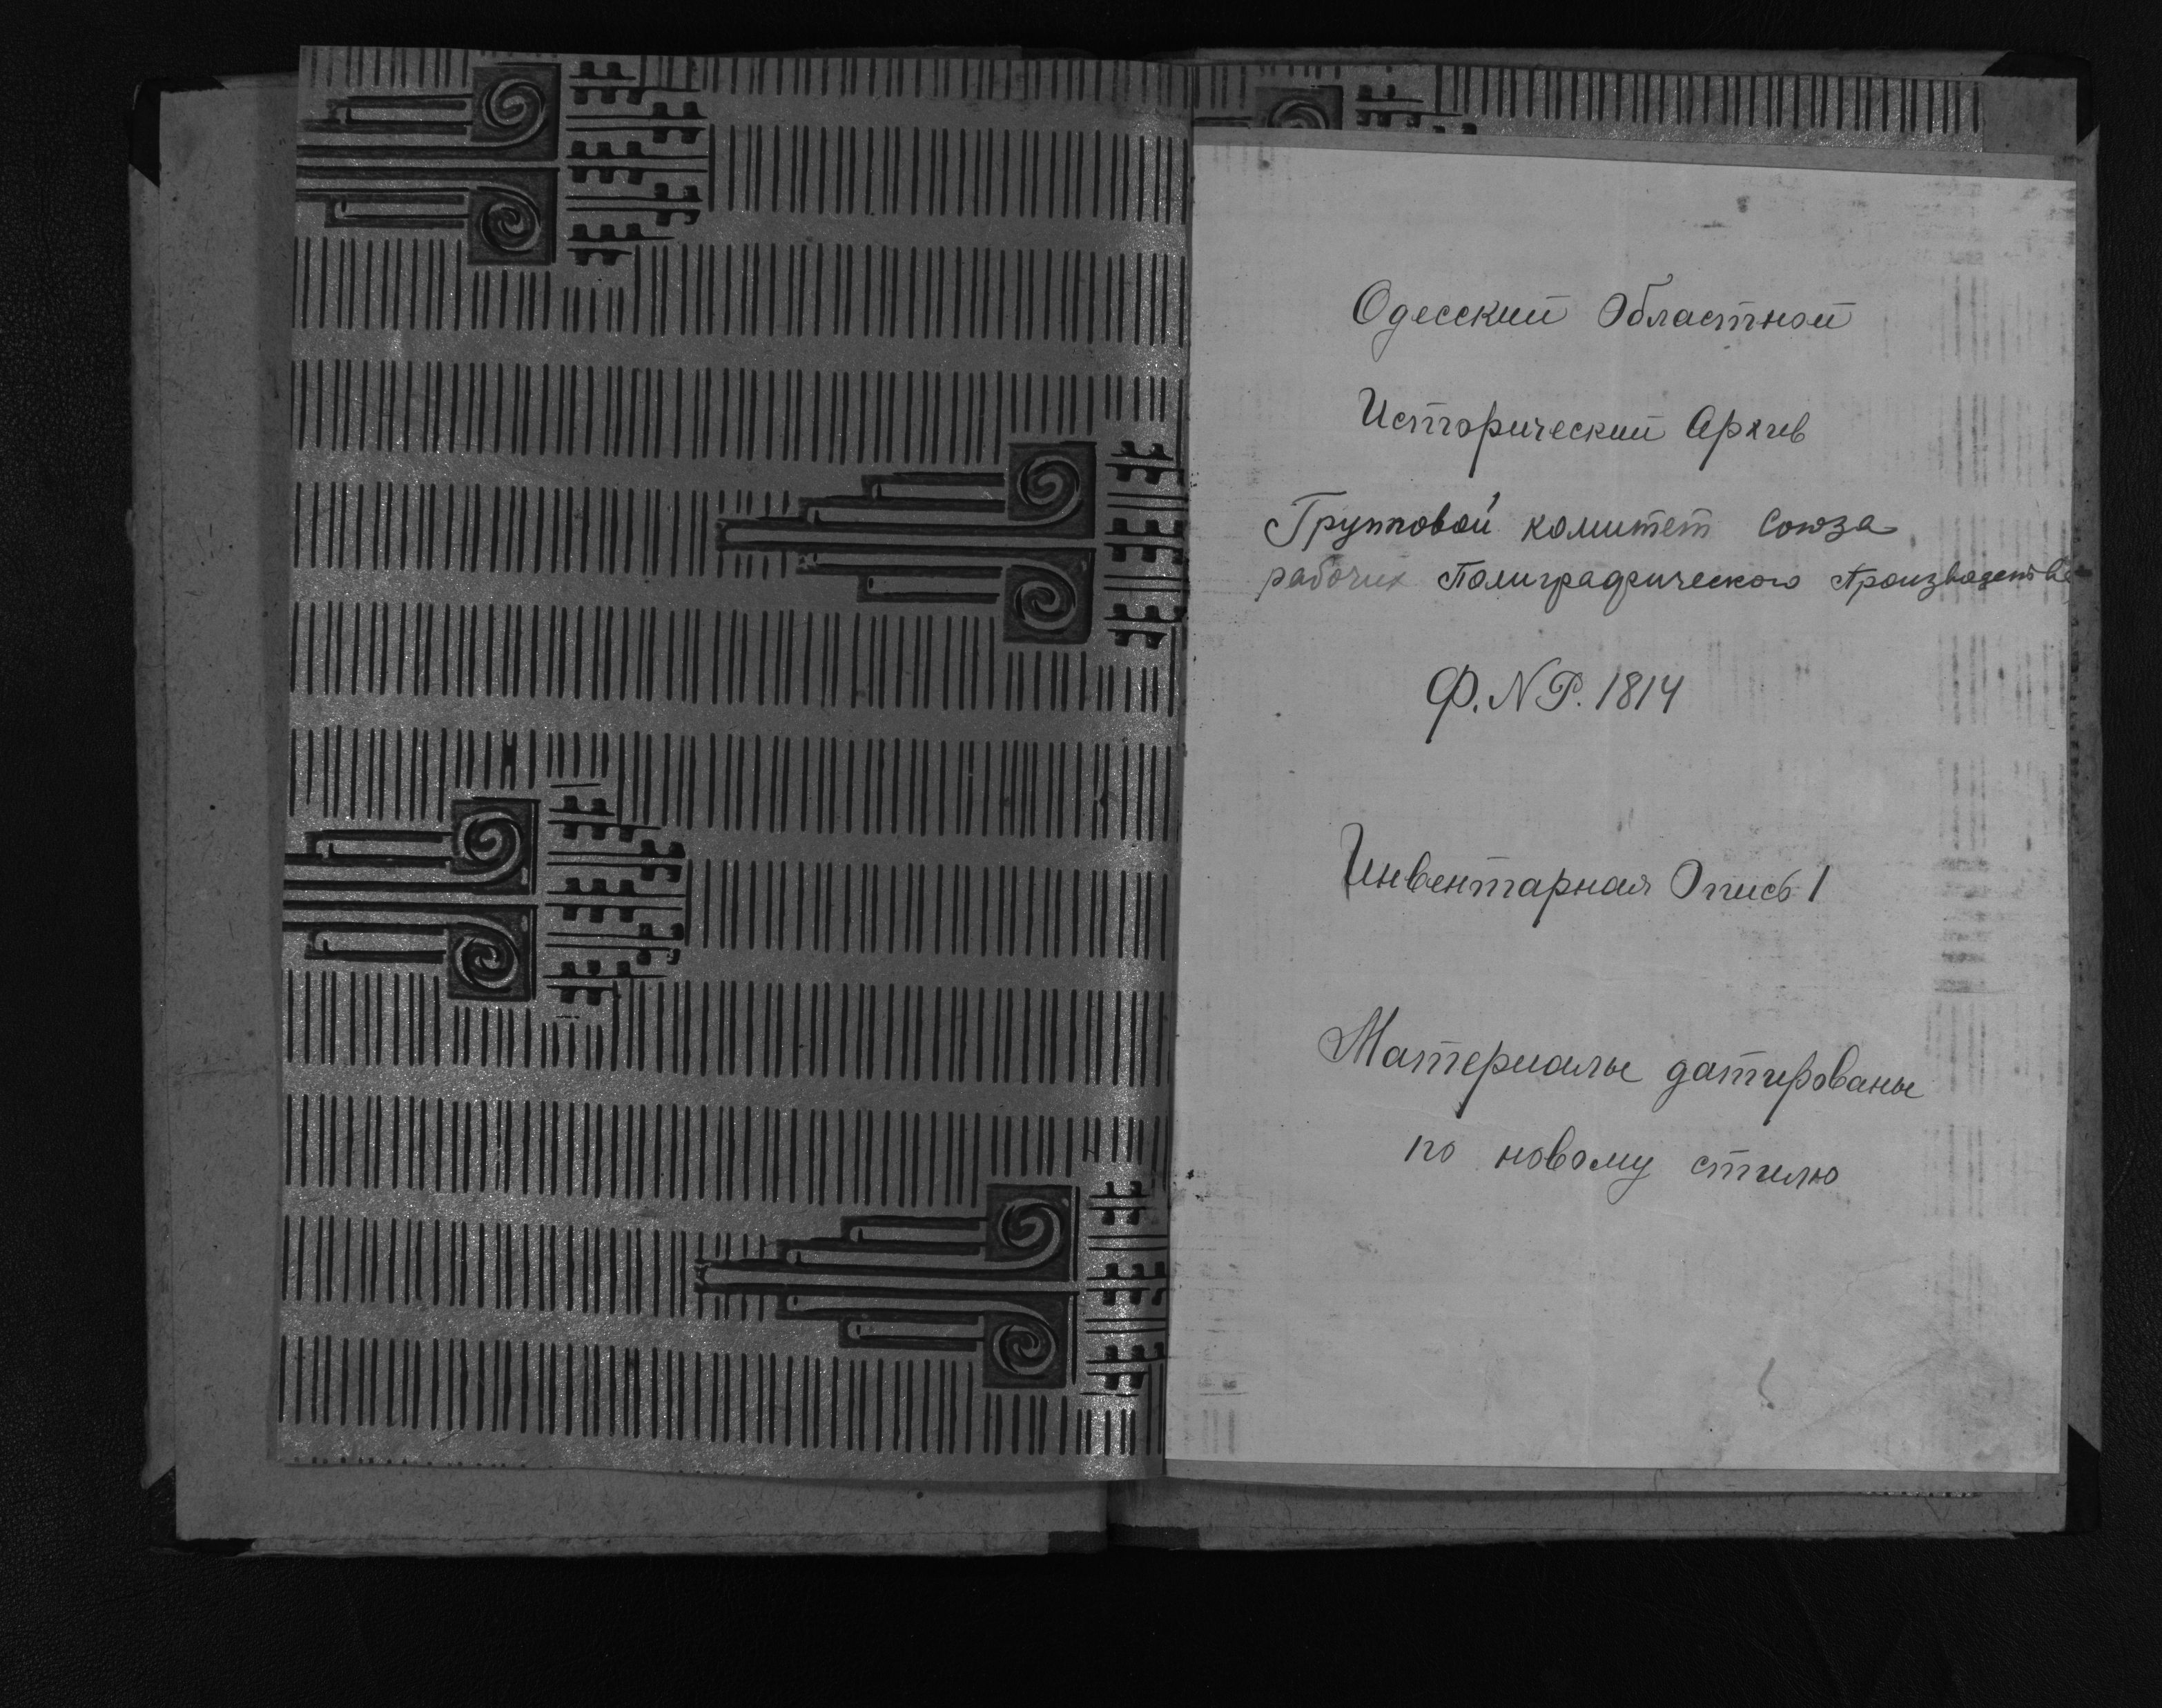 Одесский Областной
Исторический Архив
Групповой комитет Союза
рабочих Полиграфического Производства
Ф. N Р. 1814
Инвентарная Опись 1
Материалы датированы
по новому стилю